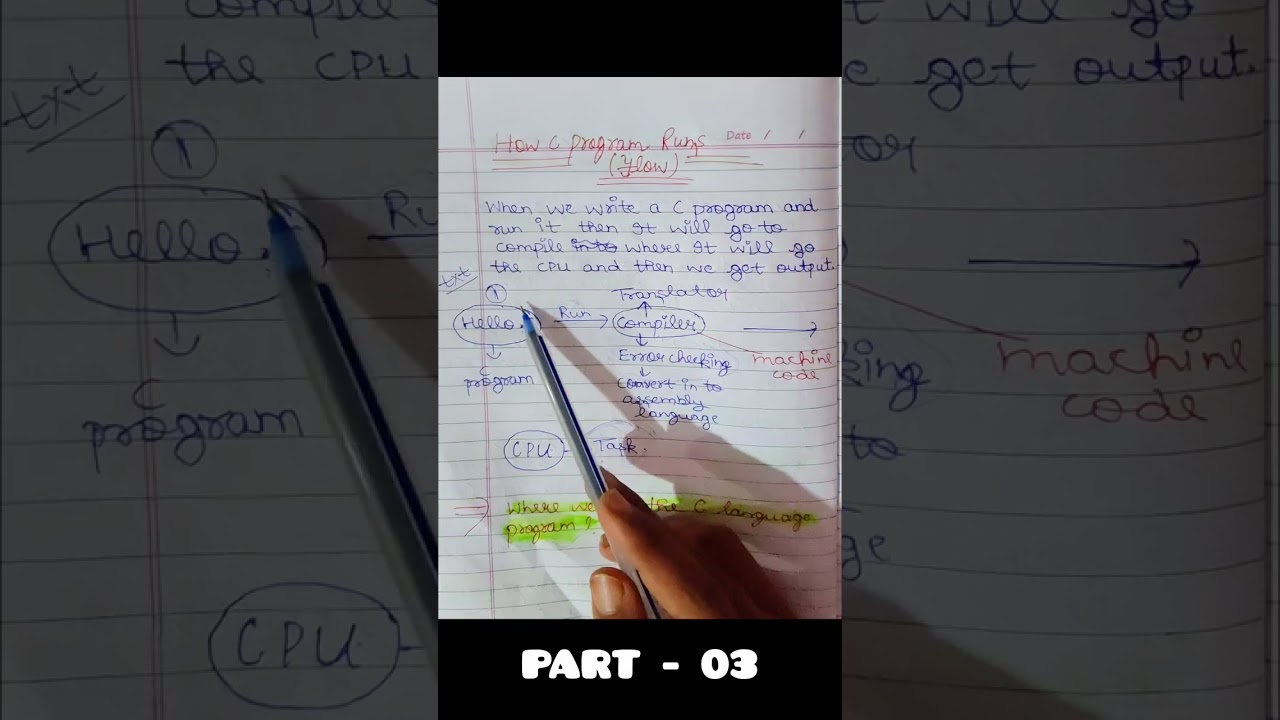 How C program Runs
Date / /
(Flow)
When we write a C program and
run it then It will go to
compile in to where It will go
the CPU and then we get output.
txt
1
Translator
Hello.
Run
Compiler
Error checking
machine
code
C
program
convert in to
assembly
language
CPU - Task.
Where we the C language
program?
PART - 03